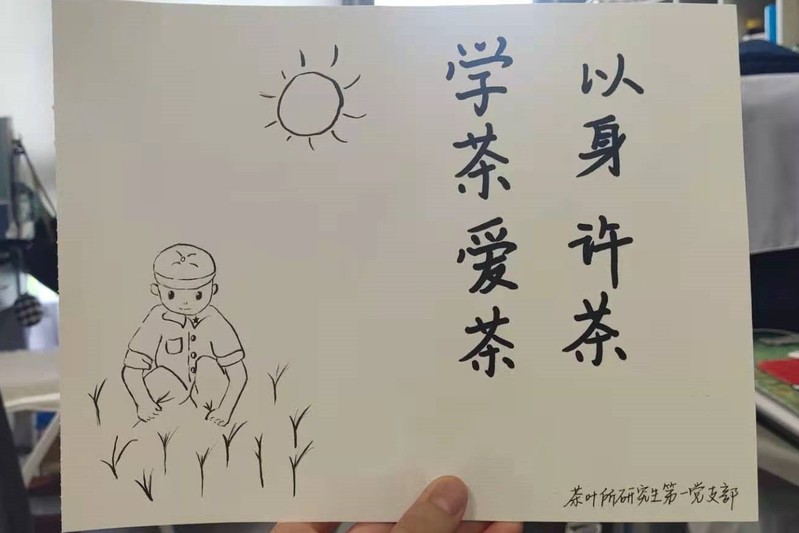 以身许茶
学茶爱茶
茶叶所研究生第一党支部